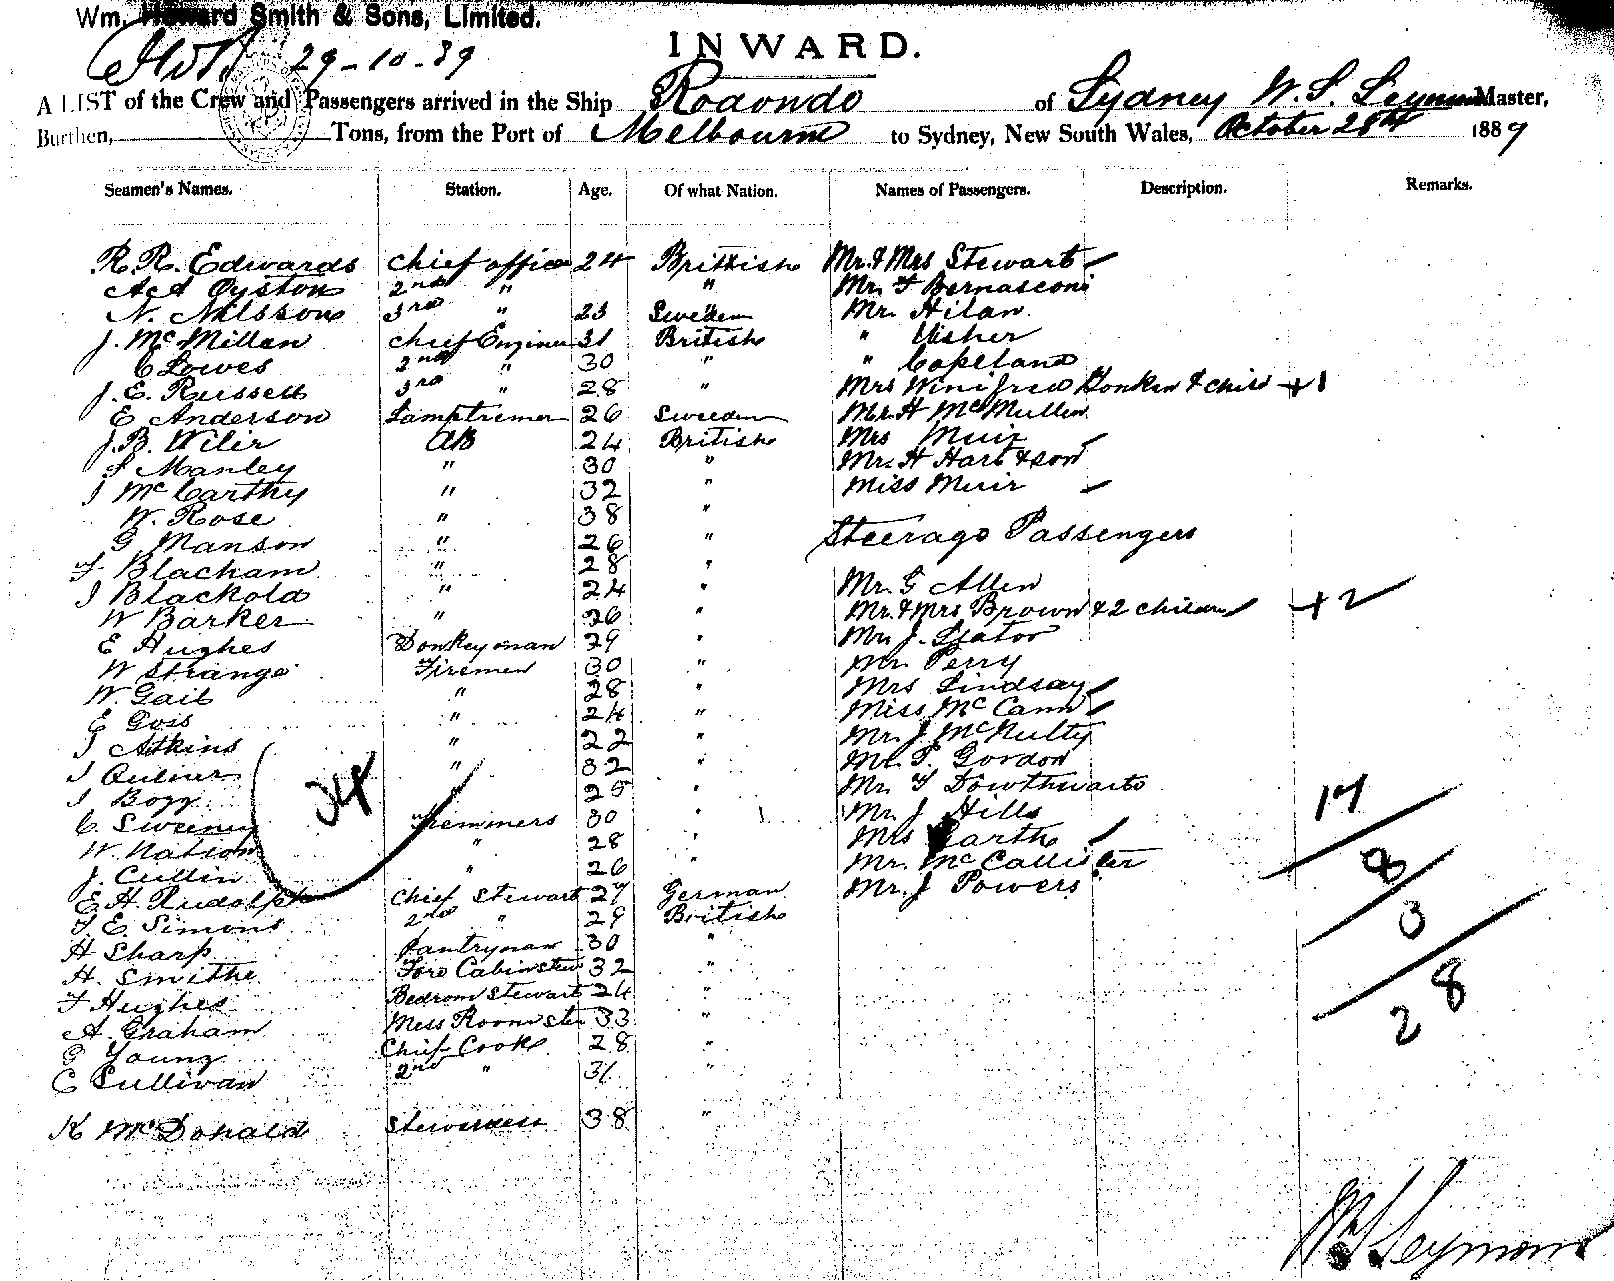 Wm. Howard Smith & Sons, Limited.
29-10-89
INWARD.
A LIST of the Crew and Passengers arrived in the Ship Rodondo of Sydney W. S. Seymour Master,
Burthen, Tons, from the Port of Melbourne to Sydney, New South Wales, October 28th 1889
Seamen's Names. Station. Age. Of what Nation. Names of Passengers. Description. Remarks.
R. R. Edwards Chief office 24 Brittish Mr. & Mrs Stewart
A Oyston 2nd " " Mr. F Bernasconi
N. Nilsson 3rd " 23 Sweden Mr. Hilan
J. McMillan Chief Engineer 31 British " Usher
C Lowes 2nd " 30 " " Copeland
J. E. Russell 3rd " 28 " Mrs Winifred & child +1
E Anderson Lamptrimer 26 Sweeden Mr. H McMullin
J. B. Wilir AB 24 British Mrs Muir
S Manley " 30 " Mr. H Hart & son
J McCarthy " 32 " Miss Muir
W. Rose " 38 "
G Manson " 26 " Steerage Passengers
F Blackam " 28 "
J Blackold " 24 " Mr. G Allen
W Barker " 26 " Mr. & Mrs Brown & 2 children +2
E Hughes Donkeyman 29 " Mr. J.
W Strange Firemen 30 " Mr. Perry
W. Gail " 28 " Mrs Lindsay
E Goss " 24 " Miss McCann
J Atkins " 22 " Mr. J McNulty
J " 32 " Mr. T. Gordon
J Bogg 25 " Mr. F Dowthwaite
C. Sweeney Tremmers 30 " Mr. J Hills
W. Nation " 28 " Mrs
J. Cullin " 26 " Mr. McCallister
E H. Rudolph Chief Stewart 27 German Mr. J Powers
F. E. Simons 2nd " 29 British
H Sharp Pantryman 30 "
H. Smithe Fore Cabin Stew 32 "
F Hughes Bedrom Stewart 24 "
A. Graham Mess Room Ste 33 "
G Young Chief Cook 28 "
C Sullivan 2nd " 31 "
K McDonald Stewerdess 38 "
34
17
8
3
28
W S Seymour